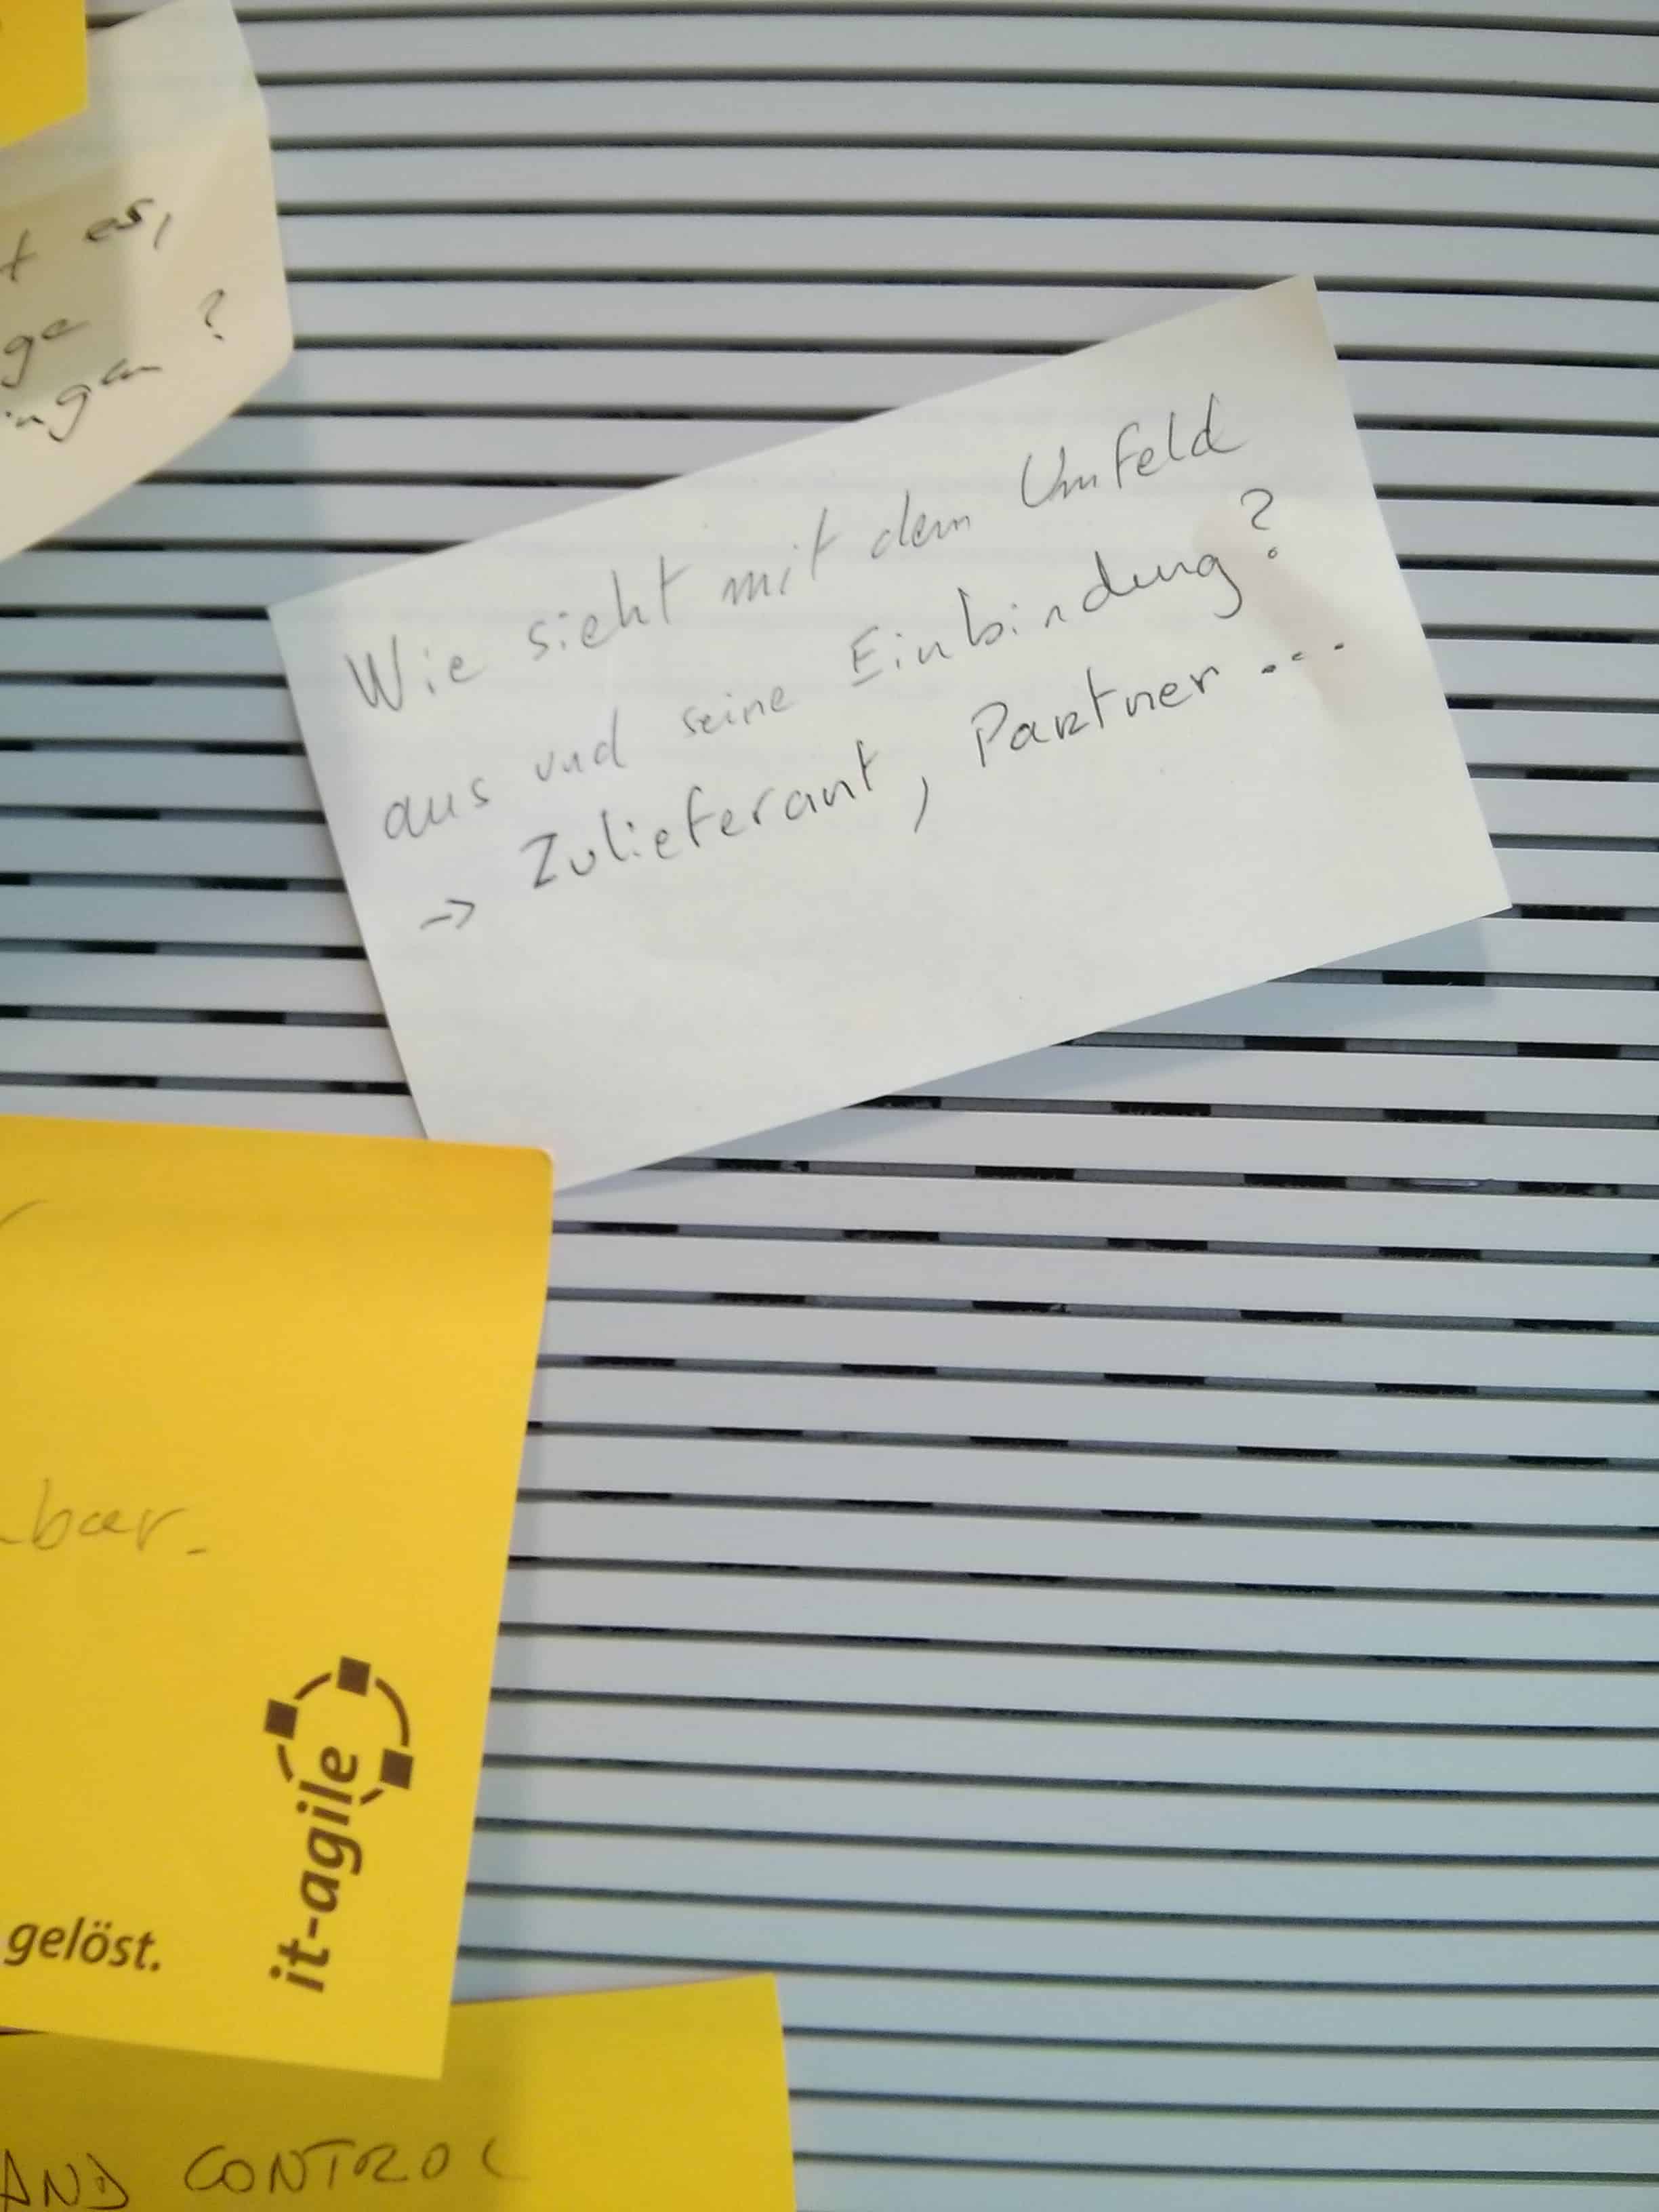 es,
?
Wie sieht mit dem Umfeld
aus und seine Einbindung?
→ Zulieferant, Partner ...
bar.
gelöst.
it-agile
AND CONTROL